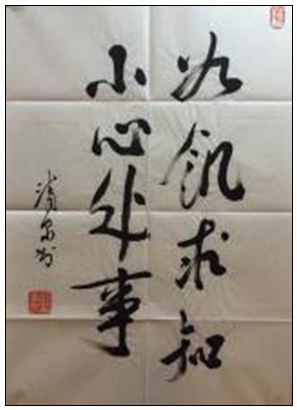 如飢求知
小心处事